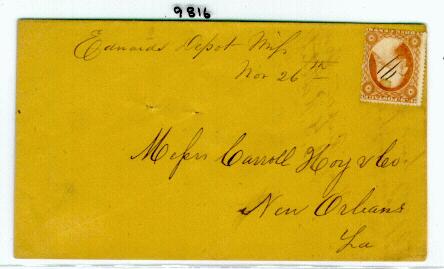 9816
Edwards Depot Miss
Nov 26th
Messrs Carroll Hoy & Co
New Orleans
La